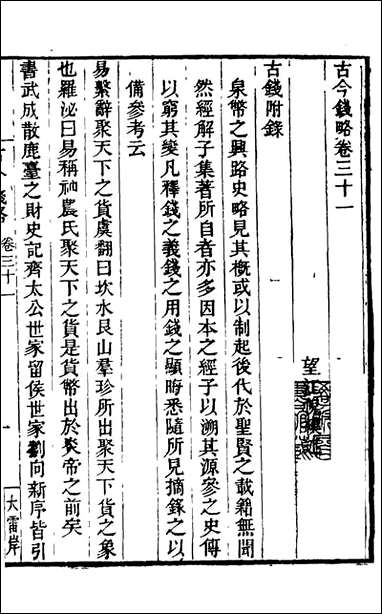 古今錢略卷三十一
望
古錢附錄
泉幣之興路史略見其槪或以制起後代於聖賢之載籍無聞
然經解子集著所自者亦多因本之經子以溯其源參之史傳
以窮其變凡釋錢之義錢之用錢之顯晦悉隨所見摘錄之以
備參考云
易繫辭聚天下之貨虞翻曰坎水艮山羣珍所出聚天下貨之象
也羅泌曰易稱神農氏聚天下之貨是貨幣出於炎帝之前矣
書武成散鹿臺之財史記齊太公世家留侯世家劉向新序皆引
卷三十一
大雷岸